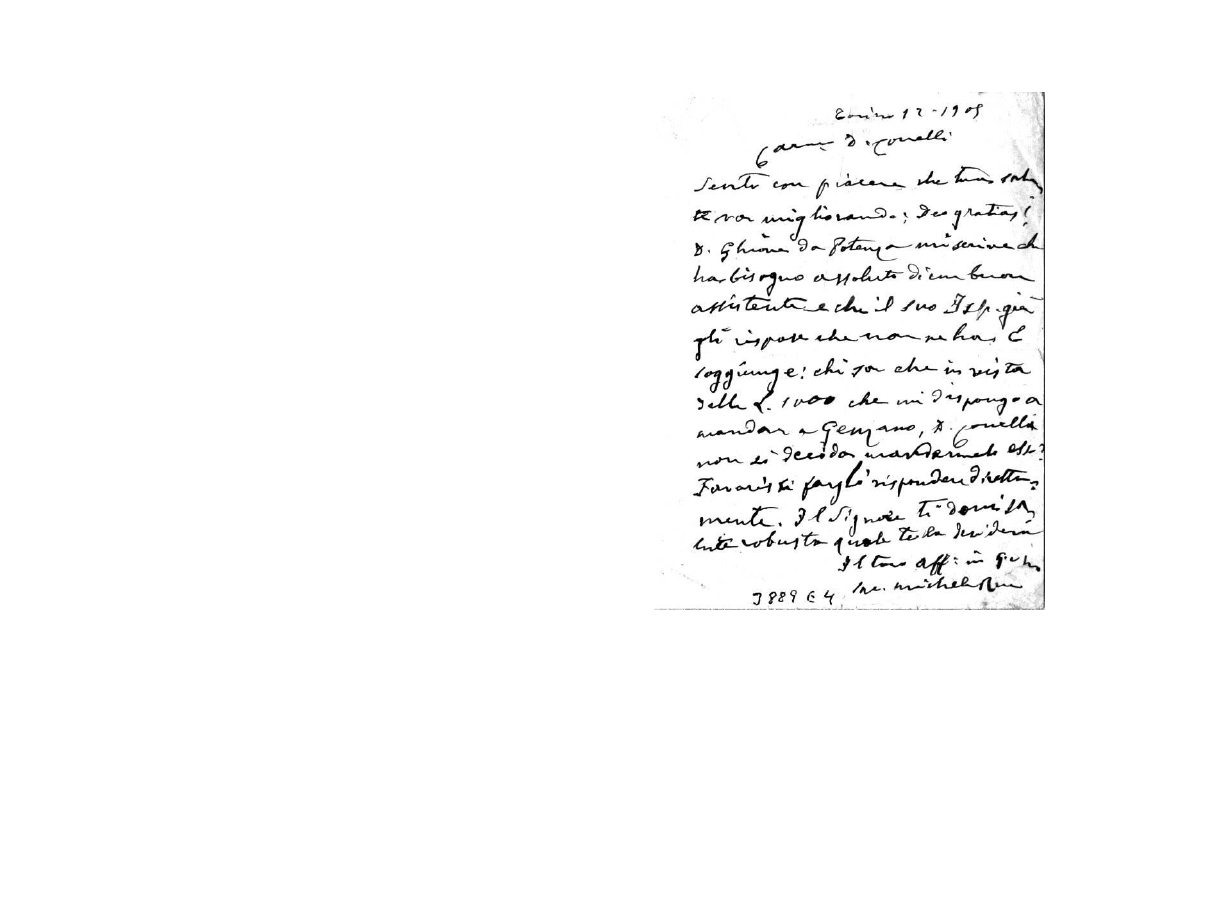 Torino 12-1909
Carmo D. Conelli
Sento con piacere che tua salu
te va migliorando; Deo gratias!
D. Ghione da Potenza mi scrive ch
ha bisogno assoluto di un buon
assistente e che il suo Isp. già
gli rispose che non ne ha. E
soggiunge: chi sa che in vista
delle L. 1000 che mi dispongo a
mandar a Genzano, D. Conelli
non si decida mandarmelo
Favorisci fargli rispondere diretta=
mente. Il Signore ti doni sa
lute robusta quale te la desidera
Il tuo aff: in G. e M.
Sac. Michele Rua
3889 E 4